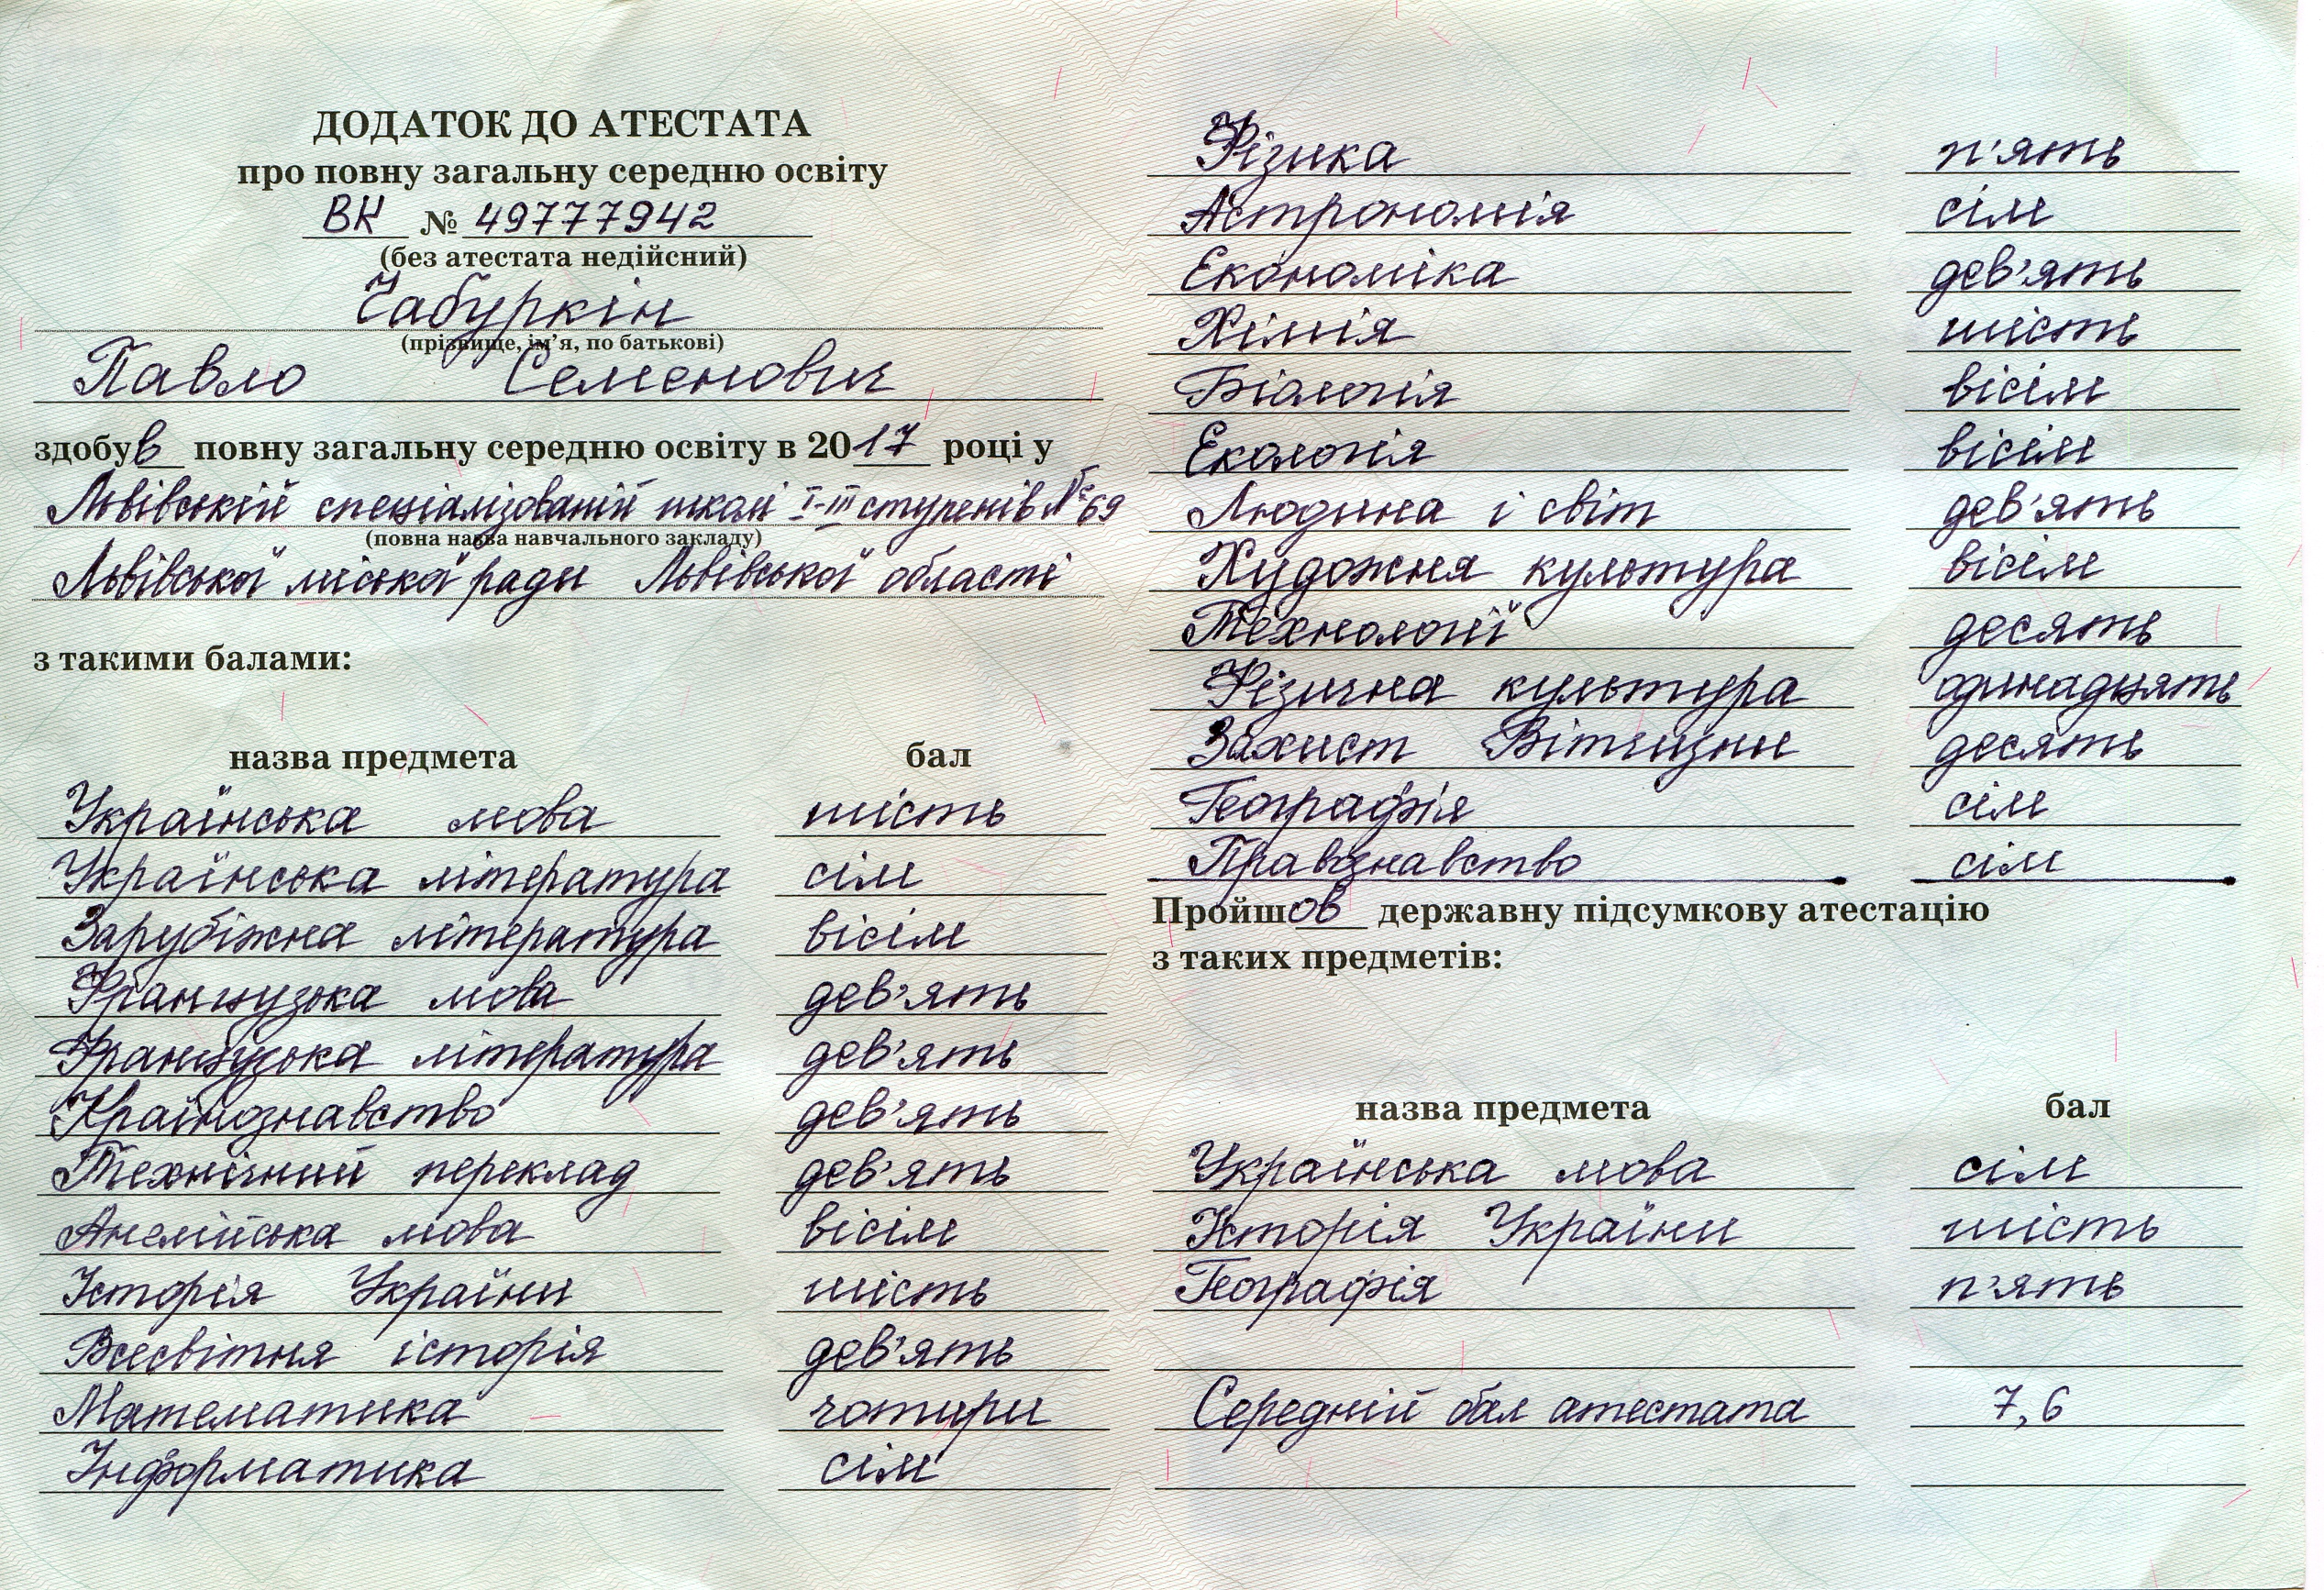 ДОДАТОК ДО АТЕСТАТА
про повну загальну середню освіту
ВК № 49777942
(без атестата недійсний)
Чабуркін
(прізвище, ім'я, по батькові)
Павло Семенович
здобув повну загальну середню освіту в 2017 році у
Львівській спеціалізованій школі І-ІІІ ступенів №69
(повна назва навчального закладу)
Львівської міської ради Львівської області
з такими балами:
назва предмета бал
Українська мова шість
Українська література сім
Зарубіжна література вісім
Французька мова дев'ять
Французька література дев'ять
Країнознавство дев'ять
Технічний переклад дев'ять
Англійська мова вісім
Історія України шість
Всесвітня історія дев'ять
Математика чотири
Інформатика сім
Фізика п'ять
Астрономія сім
Економіка дев'ять
Хімія шість
Біологія вісім
Екологія вісім
Людина і світ дев'ять
Художня культура вісім
Технології десять
Фізична культура одинадцять
Захист Вітчизни десять
Географія сім
Правознавство сім
Пройшов державну підсумкову атестацію
з таких предметів:
назва предмета бал
Українська мова сім
Історія України шість
Географія п'ять
Середній бал атестата 7,6